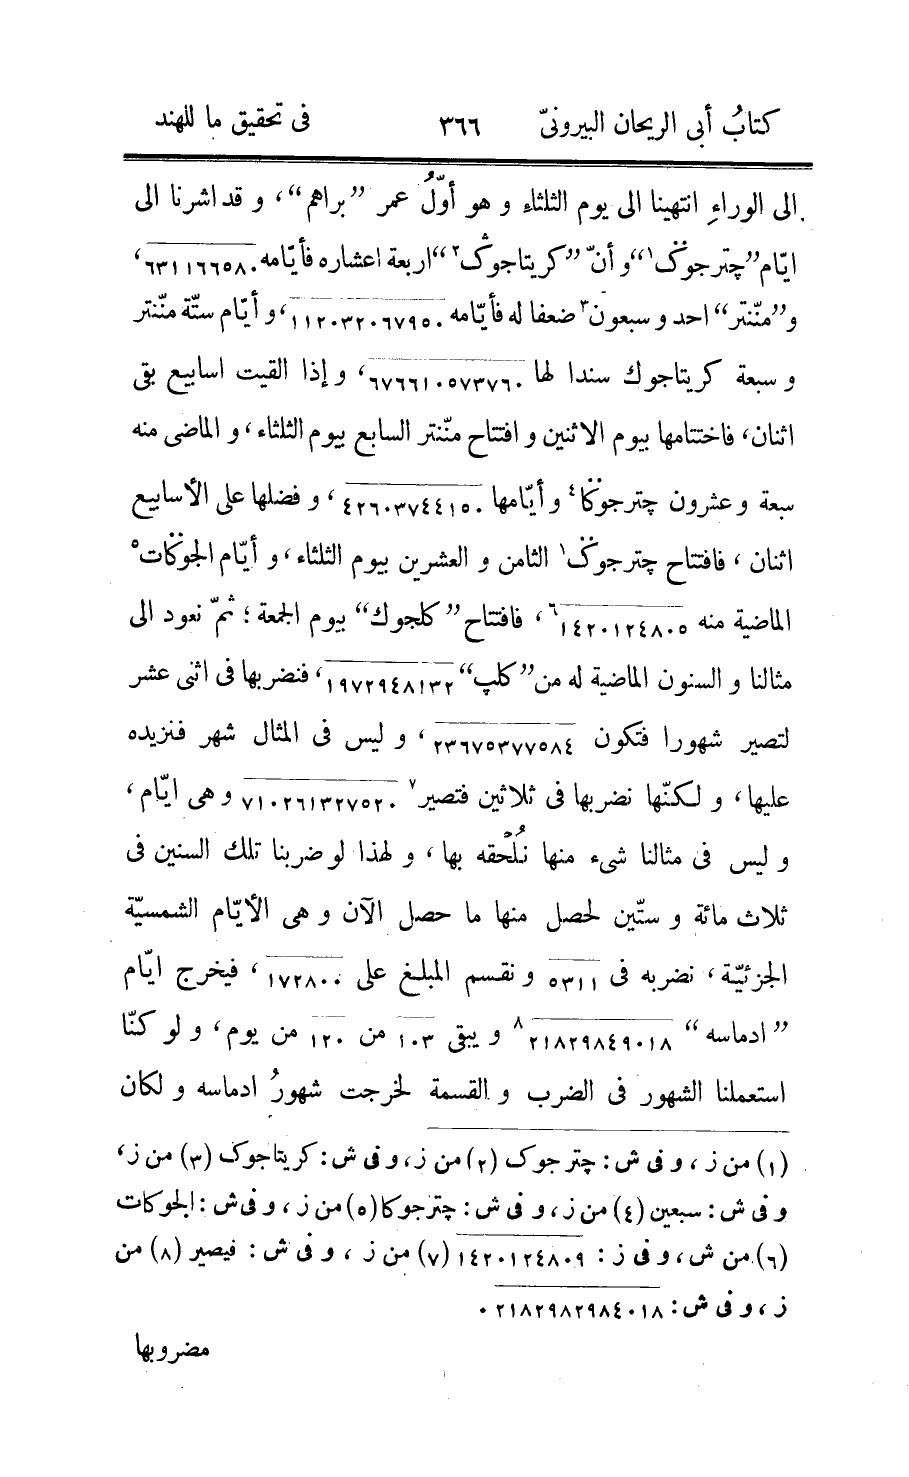 كتابُ أبى الريحان البيرونىّ ٣٦٦ فى تحقيق ما للهند
الى الوراءِ انتهينا الى يوم الثلثاء و هو أوّلُ عمر ”براهم“، و قد اشرنا الى
ايّام ”چترجوݣ١“ و أنّ ”كريتاجوݣ٢“ اربعة اعشاره فأيّامه ٦٣١١٦٦٥٨٠،
و ”منّنتر“ احد و سبعون٣ ضعفا له فأيّامه ١١٢٠٣٢٠٦٧٩٥٠، و أيّام ستّة منّنتر
و سبعة كريتاجوك سندا لها ٦٧٦٦١٠٥٧٣٧٦٠، و إذا القيت اسابيع بقى
اثنان، فاختتامها بيوم الاثنين و افتتاح منّنتر السابع بيوم الثلثاء، و الماضى منه
سبعة و عشرون چترجوݣا٤ و أيّامها ٤٢٦٠٣٧٤٤١٥٠، و فضلها على الأسابيع
اثنان، فافتتاح چترجوݣ١ الثامن و العشرين بيوم الثلثاء، و أيّام الجوݣات٥
الماضية منه ١٤٢٠١٢٤٨٠٥٦، فافتتاح ”كلجوك“ بيوم الجمعة؛ ثمّ نعود الى
مثالنا و السنون الماضية له من ”كلپ“ ١٩٧٢٩٤٨١٣٢، فنضربها فى اثنى عشر
لتصير شهورا فتكون ٢٣٦٧٥٣٧٧٥٨٤، و ليس فى المثال شهر فنزيده
عليها، و لكنّها نضربها فى ثلاثين فتصير٧ ٧١٠٢٦١٣٢٧٥٢٠ و هى ايّام،
و ليس فى مثالنا شىء منها نُلْحقه بها، و لهذا لو ضربنا تلك السنين فى
ثلاث مائة و ستّين لحصل منها ما حصل الآن و هى الأيّام الشمسيّة
الجزئيّة، نضربه فى ٥٣١١ و نقسم المبلغ على ١٧٢٨٠٠، فيخرج ايّام
”ادماسه“ ٢١٨٢٩٨٤٩٠١٨٨ و يبقى ١٠٣ من ١٢٠ من يوم، و لو كنّا
استعملنا الشهور فى الضرب و القسمة لخرجت شهورُ ادماسه و لكان
(١) من ز، و فى ش: چترجوک (٢) من ز، و فى ش: كريتاجوک (٣) من ز،
و فى ش: سبعين (٤) من ز، و فى ش: چترجوكا (٥) من ز، و فى ش: الجوكات
(٦) من ش، و فى ز: ١٤٢٠١٢٤٨٠٩ (٧) من ز، و فى ش: فيصير (٨) من
ز، و فى ش: ٢١٨٢٩٨٢٩٨٤٠١٨.
مضروبها